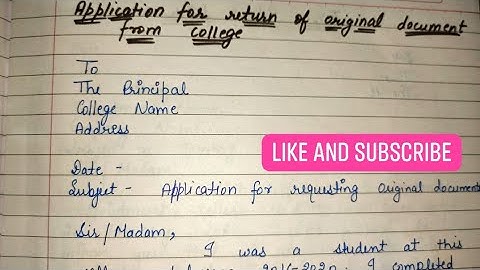 Application for return of original document
from College
To
The Principal
College Name
Address
LIKE AND SUBSCRIBE
Date -
Subject - Application for requesting original documents
Sir/Madam,
I was a student at this
I completed